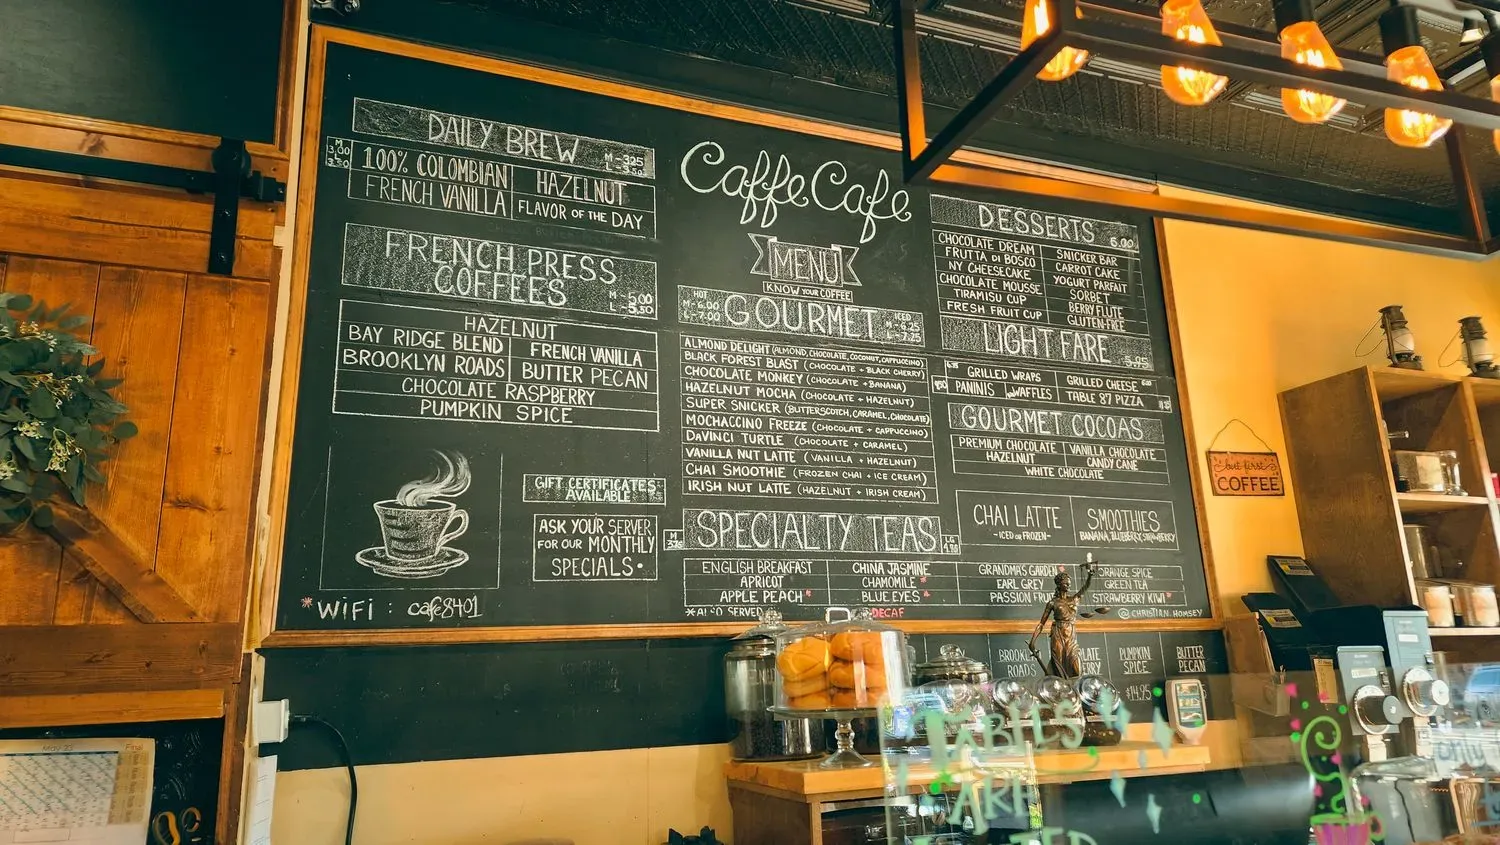 DAILY BREW
M-3.25
L-3.50
M
3.00
100% COLOMBIAN
HAZELNUT
FRENCH VANILLA
FLAVOR OF THE DAY
FRENCH PRESS
COFFEES
M-5.00
L-5.50
HAZELNUT
BAY RIDGE BLEND
FRENCH VANILLA
BROOKLYN ROADS
BUTTER PECAN
CHOCOLATE RASPBERRY
PUMPKIN SPICE
GIFT CERTIFICATES
AVAILABLE
ASK YOUR SERVER
FOR OUR MONTHLY
SPECIALS•
*WiFi : cafe8401
Caffe Cafe
MENU
KNOW YOUR COFFEE
HOT
M-6.00
L-7.00
GOURMET
ICED
M-6.25
L-7.25
ALMOND DELIGHT (ALMOND, CHOCOLATE, COCONUT, CAPPUCCINO)
BLACK FOREST BLAST (CHOCOLATE + BLACK CHERRY)
CHOCOLATE MONKEY (CHOCOLATE + BANANA)
HAZELNUT MOCHA (CHOCOLATE + HAZELNUT)
SUPER SNICKER (BUTTERSCOTCH, CARAMEL, CHOCOLATE)
MOCHACCINO FREEZE (CHOCOLATE + CAPPUCCINO)
DAVINCI TURTLE (CHOCOLATE + CARAMEL)
VANILLA NUT LATTE (VANILLA + HAZELNUT)
CHAI SMOOTHIE (FROZEN CHAI + ICE CREAM)
IRISH NUT LATTE (HAZELNUT + IRISH CREAM)
M
SPECIALTY TEAS
LG
ENGLISH BREAKFAST
CHINA JASMINE
GRANDMAS GARDEN
ORANGE SPICE
APRICOT
CHAMOMILE*
EARL GREY
GREEN TEA
APPLE PEACH*
BLUE EYES*
PASSION FRUIT
STRAWBERRY KIWI*
SERVED
DECAF
@CHRISTIAN.HOMSEY
DESSERTS 6.00
CHOCOLATE DREAM
SNICKER BAR
FRUTTA DI BOSCO
CARROT CAKE
NY CHEESECAKE
YOGURT PARFAIT
CHOCOLATE MOUSSE
SORBET
TIRAMISU CUP
BERRY FLUTE
FRESH FRUIT CUP
GLUTEN-FREE
LIGHT FARE
5.95
GRILLED WRAPS
GRILLED CHEESE
PANINIS
WAFFLES
TABLE 87 PIZZA
GOURMET COCOAS
PREMIUM CHOCOLATE
VANILLA CHOCOLATE
HAZELNUT
CANDY CANE
WHITE CHOCOLATE
CHAI LATTE
-ICED OR FROZEN-
SMOOTHIES
BANANA, BLUEBERRY, STRAWBERRY
but first
COFFEE
ROADS
PUMPKIN
SPICE
BUTTER
PECAN
$14.95
TABLES
ARE
May 23
Final
only